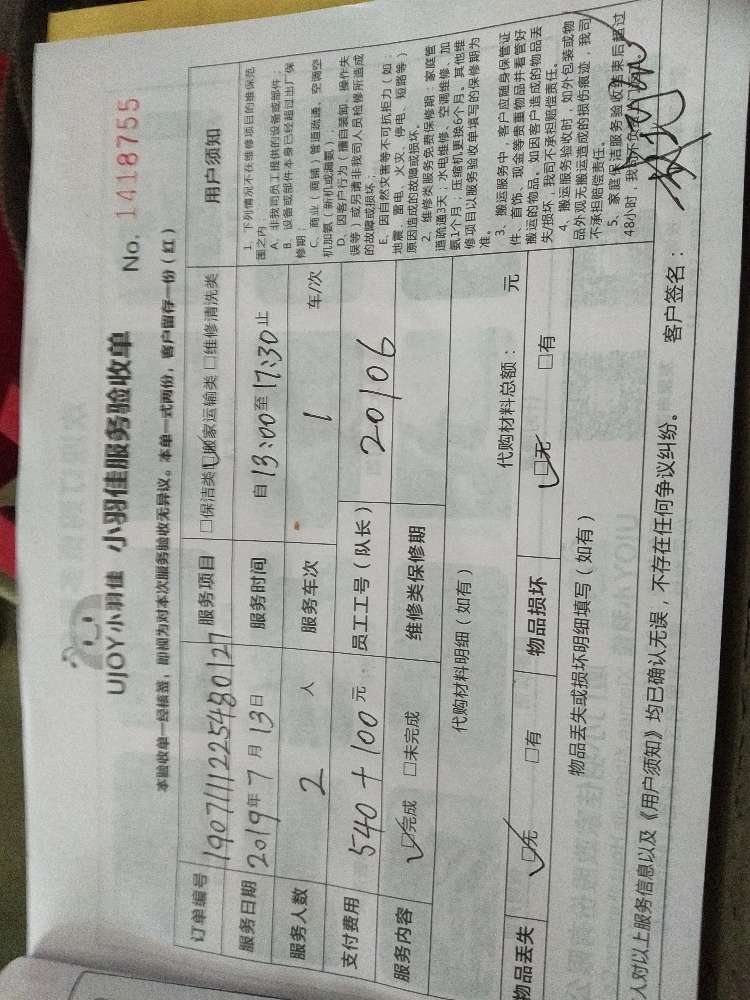 UJOY小羽佳 小羽佳服务验收单
No. 1418755
本验收单一经核签，即视为对本次服务验收无异议。本单一式两份，客户留存一份（红）
订单编号 1907111225480127 服务项目 □保洁类 ☑搬家运输类 □维修清洗类
服务日期 2019年7月13日 服务时间 自13:00至17:30止
服务人数 2 人 服务车次 1 车/次
支付费用 540+100元 员工工号（队长） 20106
服务内容 ☑完成 □未完成 维修类保修期
代购材料明细（如有） 代购材料总额： 元
物品丢失 ☑无 □有 物品损坏 ☑无 □有
物品丢失或损坏明细填写（如有）
用户须知
1、下列情况不在维修项目的维保范
围之内：
A、非我司员工提供的设备或部件；
B、设备或部件本身已经超过出厂保
修期；
C、商业（商铺）管道疏通、空调空
机加氨（新机或漏氨）；
D、因客户行为（擅自装卸、操作失
误等）或另请非我司人员检修所造成
的故障或损坏；
E、因自然灾害等不可抗拒力（如：
地震、雷电、火灾、停电、短路等）
原因造成的故障或损坏。
2、维修类服务免费保修期：家庭管
道疏通3天；水电维修、空调维修、加
氨1个月；压缩机更换6个月。其他维
修项目以服务验收单填写的保修期为
准。
3、搬运服务中，客户应随身保管证
件、首饰、现金等贵重物品并看管好
搬运的物品。如因客户造成的物品丢
失/损坏，我司不承担赔偿责任。
4、搬运服务验收时，如外包装或物
品外观无搬运造成的损伤痕迹，我司
不承担赔偿责任。
5、家庭保洁服务验收结束后超过
48小时，我司不负
人对以上服务信息以及《用户须知》均已确认无误，不存在任何争议纠纷。 客户签名：